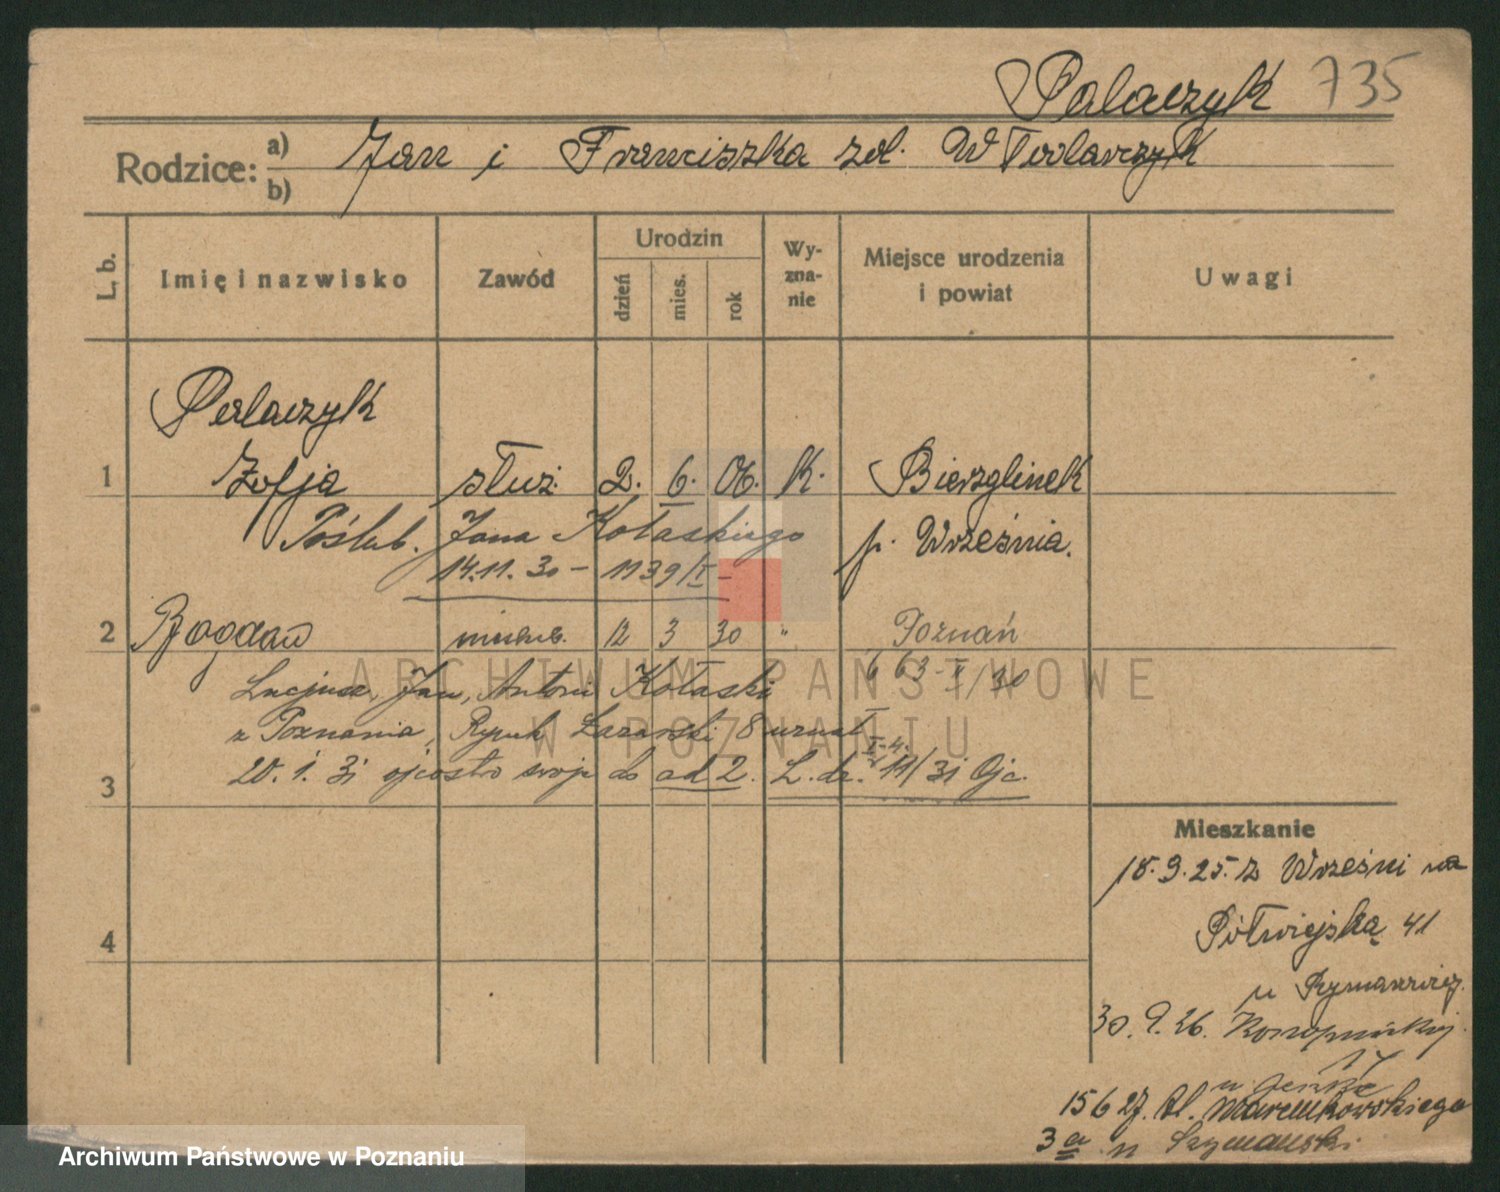 Palaczyk 735
Rodzice: a) b) Jan i Franciszka zd. Wtolarczyk
L. b.
Imię i nazwisko
Zawód
Urodzin
dzień
mies.
rok
Wy-
zna-
nie
Miejsce urodzenia
i powiat
Uwagi
Palaczyk
1 Zofja służ. 2. 6. 06. K. Bierzglinek
Poślub. Jana Kołaskiego p. Września.
14.11.30 – 1139/I –
2 Bogdan 12 3 30 " Poznań
Lucjusz, Jan, Antoni Kołaski 663 II/30
z Poznania, Rynek Łazarski 8 uznał
3 20.1.31 ojcostwo swoje do ad 2. L. dz. 11/31 Ojc.
4
Mieszkanie
18.9.25. z Wrześni na
Półwiejską 41
u
30.9.26. Konopnickiej
17
u
15 6 27. Al. Marcinkowskiego
3a u Szymański
ARCHIWUM PAŃSTWOWE
W POZNANIU
Archiwum Państwowe w Poznaniu